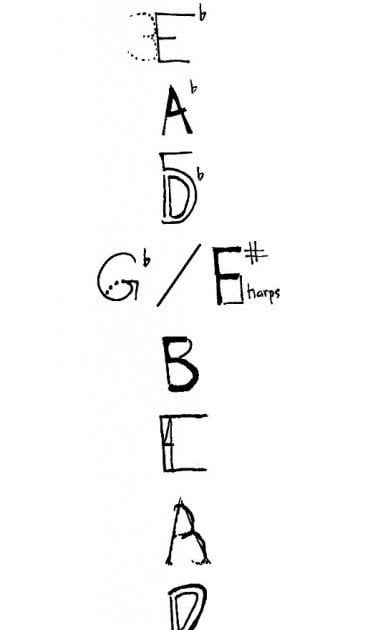 E♭
A♭
D♭
G♭ / F# harps
B
E
A
D